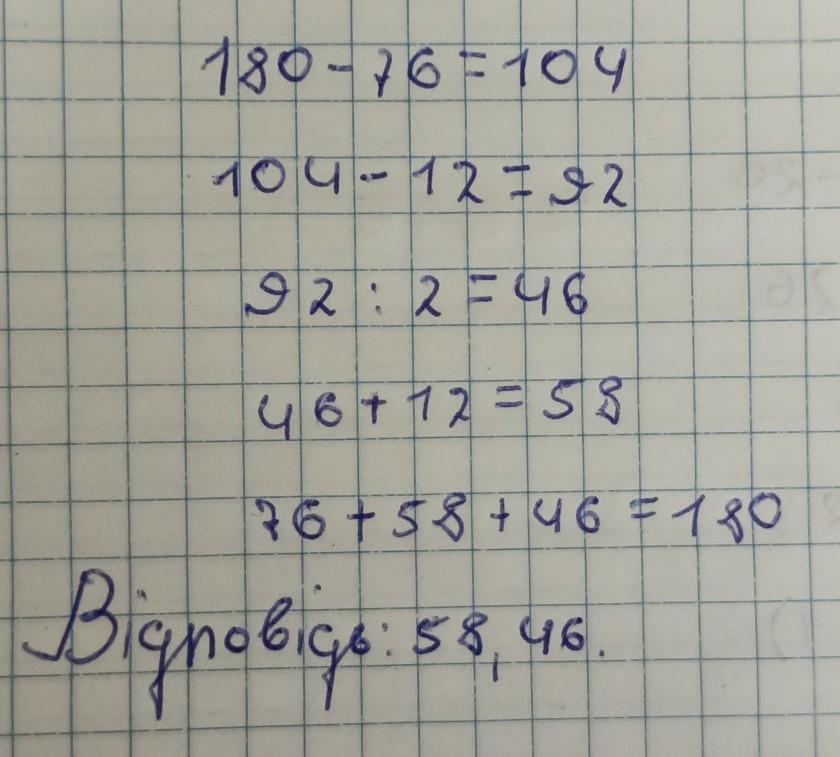 180-76=104
104-12=92
92:2=46
46+12=58
76+58+46=180
Відповідь: 58, 46.